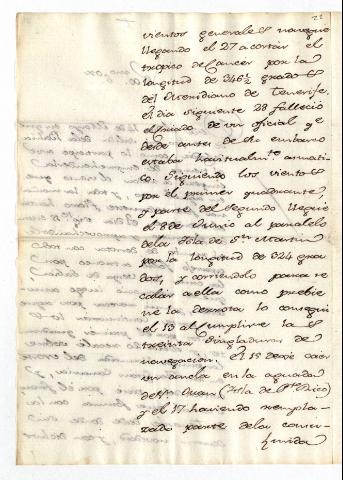 22
vientos generales navegue
llegando el 27 a cortar el
tropico de Cancer por la
longitud de 346½ grados
del Meridiano de Tenerife.
El dia siguiente 28 fallecio
el criado de un oficial q.e
desde antes de su embarco
estaba havitualm.te asmati-
co. Siguiendo los vientos
por el primer quadrante
y parte del segundo llegué
el 8 de Junio al paralelo
de la Isla de S.n Martin
por la longitud de 324 gra
dos, y corriendolo para re
calar a ella como previe
ne la derrota lo consegui
el 13 al cumplirse las
treinta singladuras de
navegacion. El 15 dexe caer
un ancla en la aguada
de S.n Juan (Isla de P.to Rico)
y el 17 haviendo rempla-
zado parte de la consu-
mida